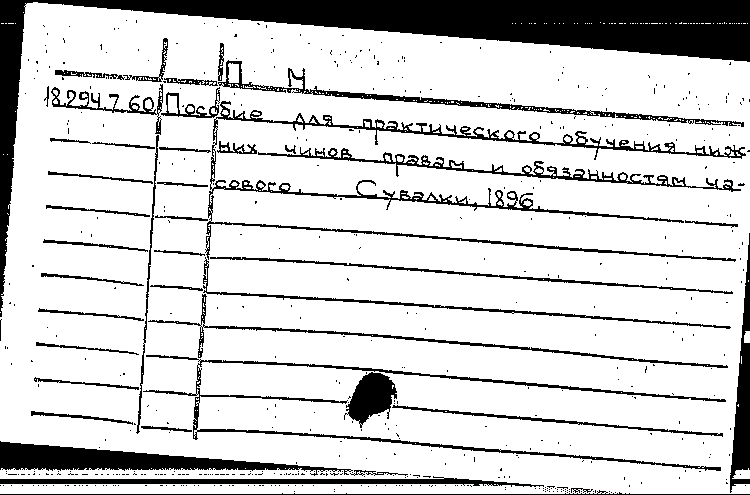 П. М.
18.294.7.60 Пособие для практического обучения ниж-
них чинов правам и обязанностям ча-
сового. Сувалки, 1896.